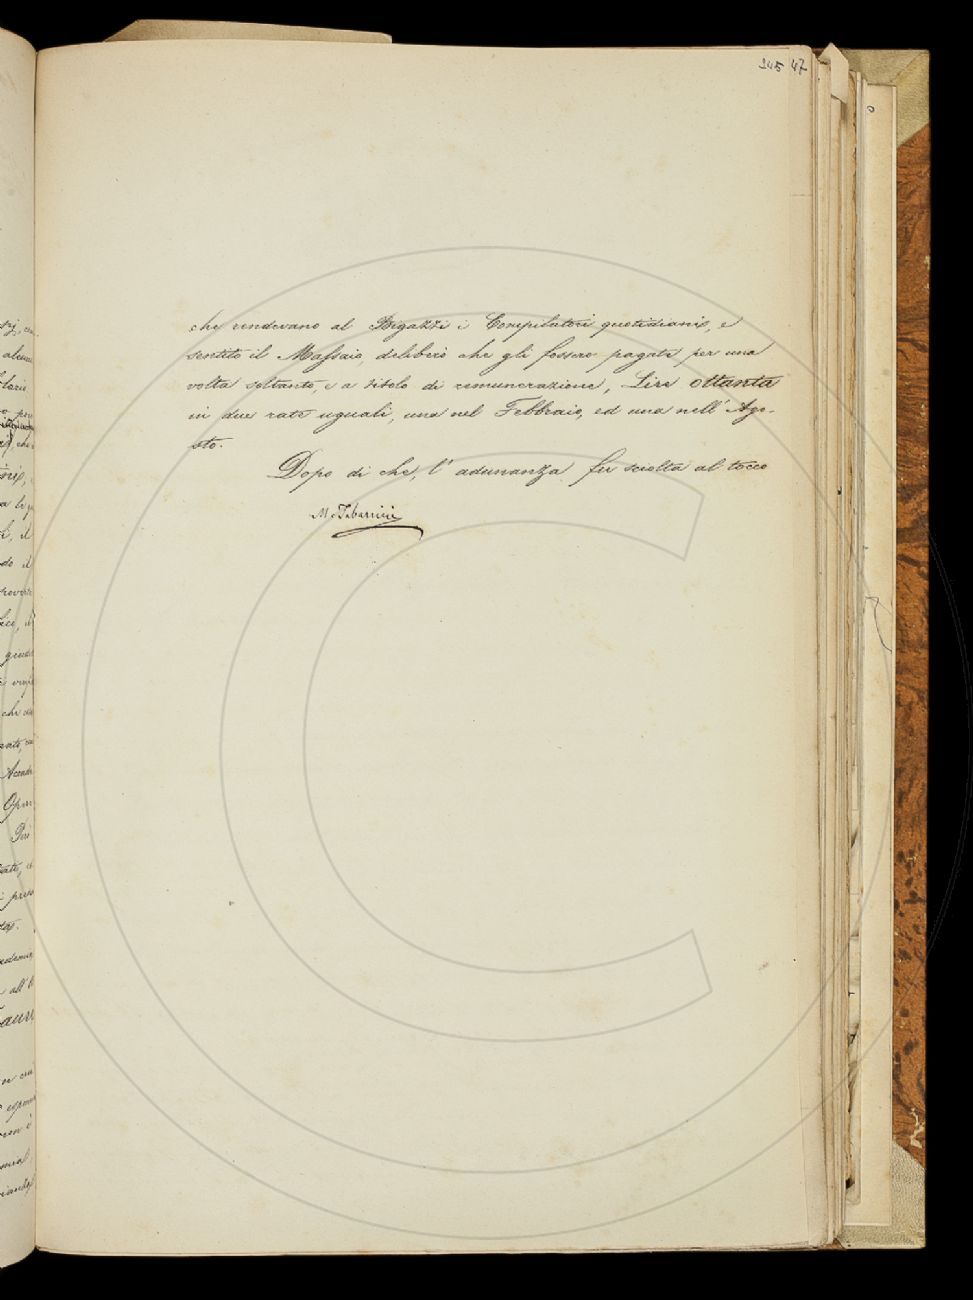 345 47
che rendevano al Bigazzi i Compilatori quotidiani, e
sentito il Massaio, deliberò che gli fossero pagate per una
volta soltanto, e a titolo di remunerazione, Lire ottanta
in due rate uguali, una nel Febbraio, ed una nell'Ago-
sto.
Dopo di che, l'adunanza fu sciolta al tocco
M. Tabarrini